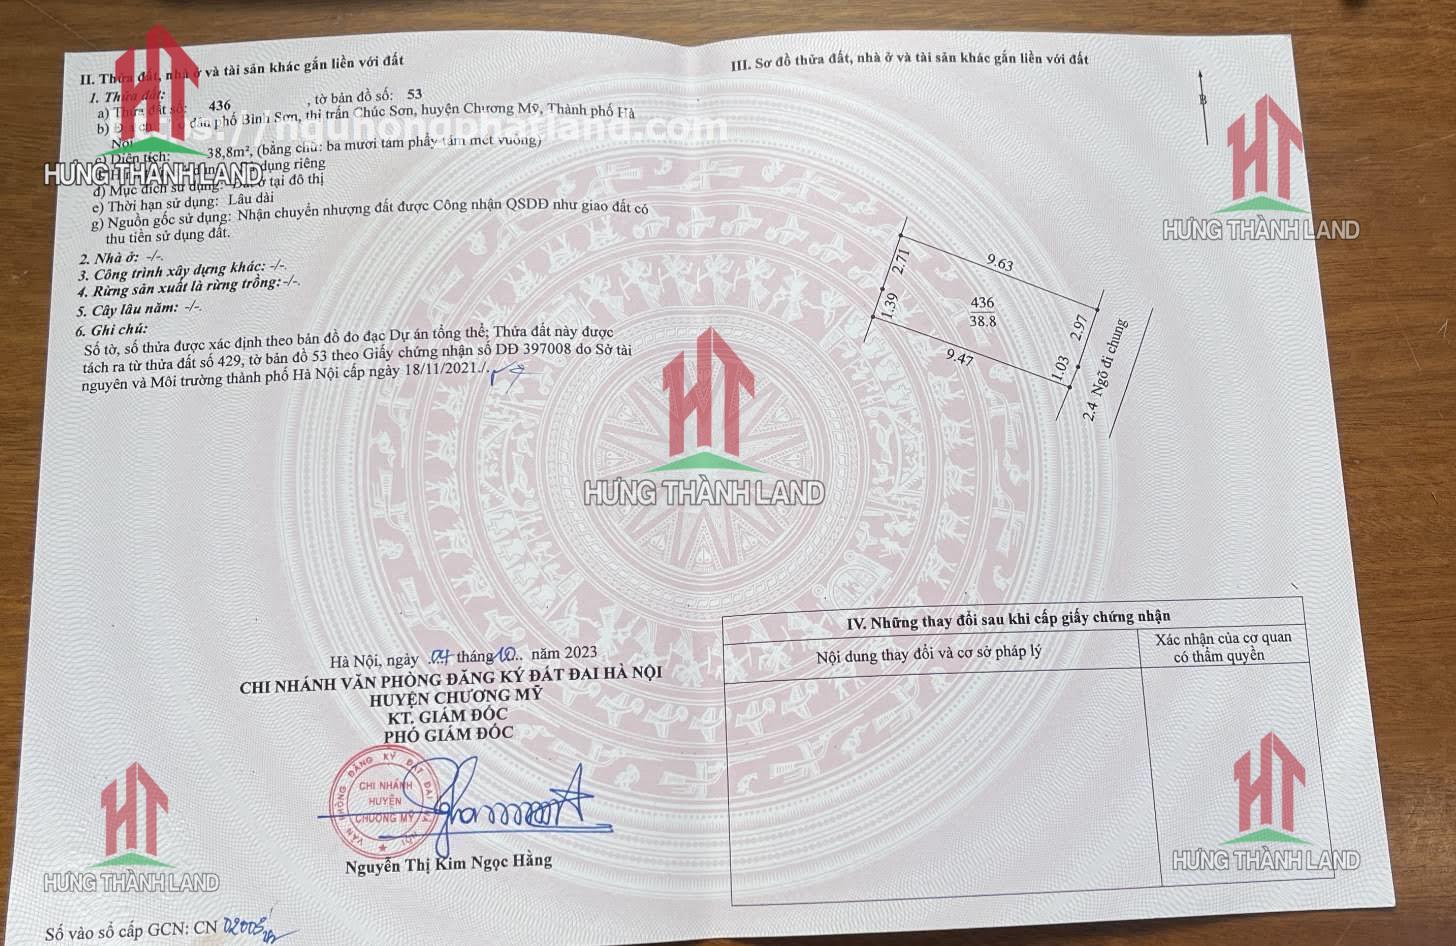 II. Thửa đất, nhà ở và tài sản khác gắn liền với đất
1. Thửa đất:
a) Thửa đất số: 436 , tờ bản đồ số: 53
b) Đ dân phố Bình Sơn, thị trấn Chúc Sơn, huyện Chương Mỹ, Thành phố Hà
Nội
c) Diện tích: 38,8m², (bằng chữ: ba mươi tám phẩy tám mét vuông)
dụng riêng
đ) Mục đích sử dụng: Đất ở tại đô thị
e) Thời hạn sử dụng: Lâu dài
g) Nguồn gốc sử dụng: Nhận chuyển nhượng đất được Công nhận QSDĐ như giao đất có
thu tiền sử dụng đất.
2. Nhà ở: -/-.
3. Công trình xây dựng khác: -/-.
4. Rừng sản xuất là rừng trồng: -/-.
5. Cây lâu năm: -/-.
6. Ghi chú:
Số tờ, số thửa được xác định theo bản đồ đo đạc Dự án tổng thể; Thửa đất này được
tách ra từ thửa đất số 429, tờ bản đồ 53 theo Giấy chứng nhận số DĐ 397008 do Sở tài
nguyên và Môi trường thành phố Hà Nội cấp ngày 18/11/2021./.
Hà Nội, ngày 04 tháng 10 năm 2023
CHI NHÁNH VĂN PHÒNG ĐĂNG KÝ ĐẤT ĐAI HÀ NỘI
HUYỆN CHƯƠNG MỸ
KT. GIÁM ĐỐC
PHÓ GIÁM ĐỐC
VĂN PHÒNG ĐĂNG KÝ ĐẤT ĐAI
CHI NHÁNH
HUYỆN
CHƯƠNG MỸ
Nguyễn Thị Kim Ngọc Hằng
Số vào sổ cấp GCN: CN
III. Sơ đồ thửa đất, nhà ở và tài sản khác gắn liền với đất
B
9.63
2.71
1.39
436
38.8
2.97
1.03
9.47
2.4 Ngõ đi chung
IV. Những thay đổi sau khi cấp giấy chứng nhận
Nội dung thay đổi và cơ sở pháp lý
Xác nhận của cơ quan
có thẩm quyền
HƯNG THÀNH LAND
HƯNG THÀNH LAND
HƯNG THÀNH LAND
HƯNG THÀNH LAND
HƯNG THÀNH LAND